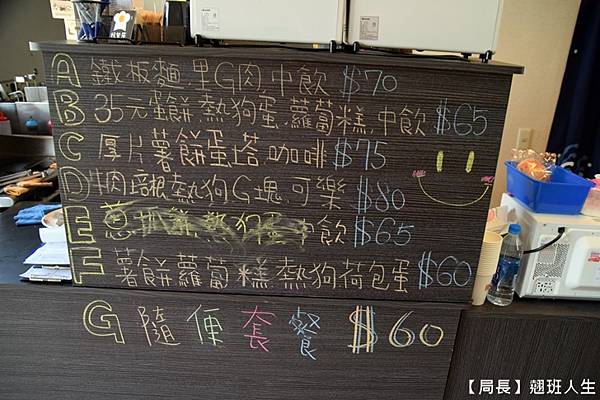 A 鐵板麵.里G肉.中飲 $70
B 35元蛋餅.熱狗蛋.蘿蔔糕.中飲 $65
C 厚片薯餅蛋塔.咖啡 $75
D 培根熱狗G塊.可樂 $80
E 蔥 中飲 $65
F 薯餅蘿蔔糕.熱狗荷包蛋 $60
G 隨便套餐 $60
【局長】翹班人生